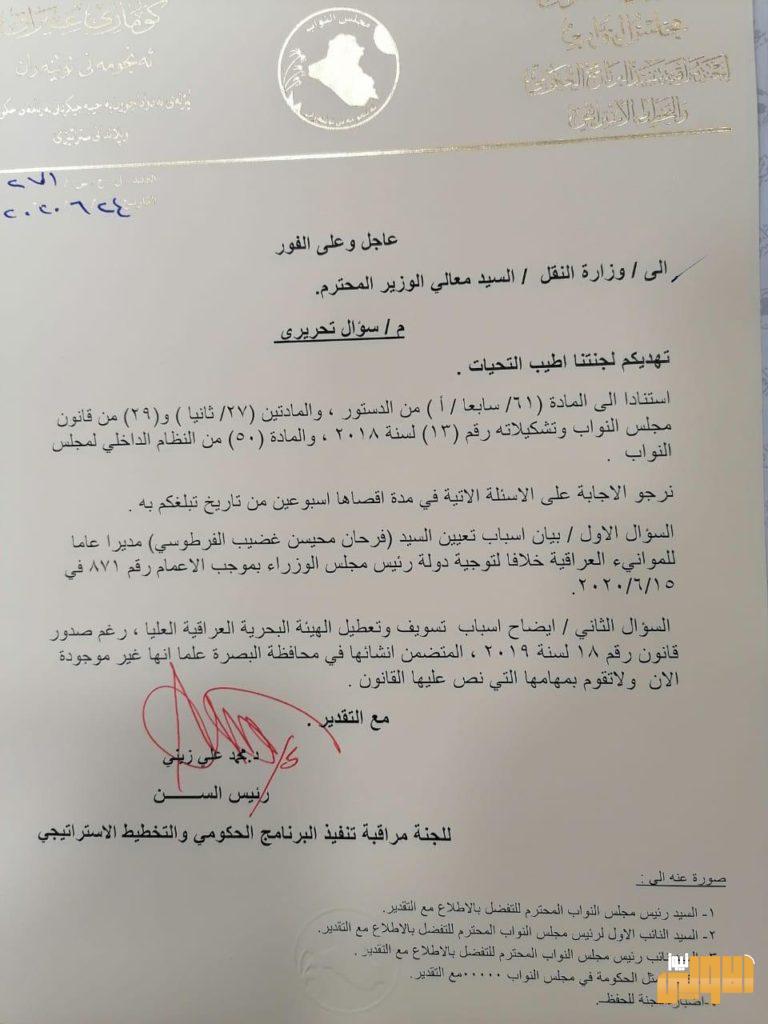 مجلس النواب
مجلس النواب
لجنة مراقبة تنفيذ البرنامج الحكومي
والتخطيط الاستراتيجي
ئەنجومەنی نوێنەران
٢٧١
٢٠٢٠/٦/٢٤
عاجل وعلى الفور
الى / وزارة النقل / السيد معالي الوزير المحترم.
م / سؤال تحريرى
تهديكم لجنتنا اطيب التحيات .
استنادا الى المادة (٦١/ سابعا / أ ) من الدستور ، والمادتين (٢٧/ ثانيا ) و(٢٩) من قانون
مجلس النواب وتشكيلاته رقم (١٣) لسنة ٢٠١٨ ، والمادة (٥٠) من النظام الداخلي لمجلس
النواب .
نرجو الاجابة على الاسئلة الاتية في مدة اقصاها اسبوعين من تاريخ تبلغكم به .
السؤال الاول / بيان اسباب تعيين السيد (فرحان محيسن غضيب الفرطوسي) مديرا عاما
للموانيء العراقية خلافا لتوجية دولة رئيس مجلس الوزراء بموجب الاعمام رقم ٨٧١ في
٢٠٢٠/٦/١٥.
السؤال الثاني / ايضاح اسباب تسويف وتعطيل الهيئة البحرية العراقية العليا ، رغم صدور
قانون رقم ١٨ لسنة ٢٠١٩ ، المتضمن انشائها في محافظة البصرة علما انها غير موجودة
الان ولاتقوم بمهامها التي نص عليها القانون .
مع التقدير .
د.محمد علي زيني
رئيس الســـــن
للجنة مراقبة تنفيذ البرنامج الحكومي والتخطيط الاستراتيجي
صورة عنه الى :
١- السيد رئيس مجلس النواب المحترم للتفضل بالاطلاع مع التقدير.
٢- السيد النائب الاول لرئيس مجلس النواب المحترم للتفضل بالاطلاع مع التقدير.
نائب رئيس مجلس النواب المحترم للتفضل بالاطلاع مع التقدير .
الحكومة في مجلس النواب ٠٠٠٠٠مع التقدير.
اضبارة للحفظ.
نيوز